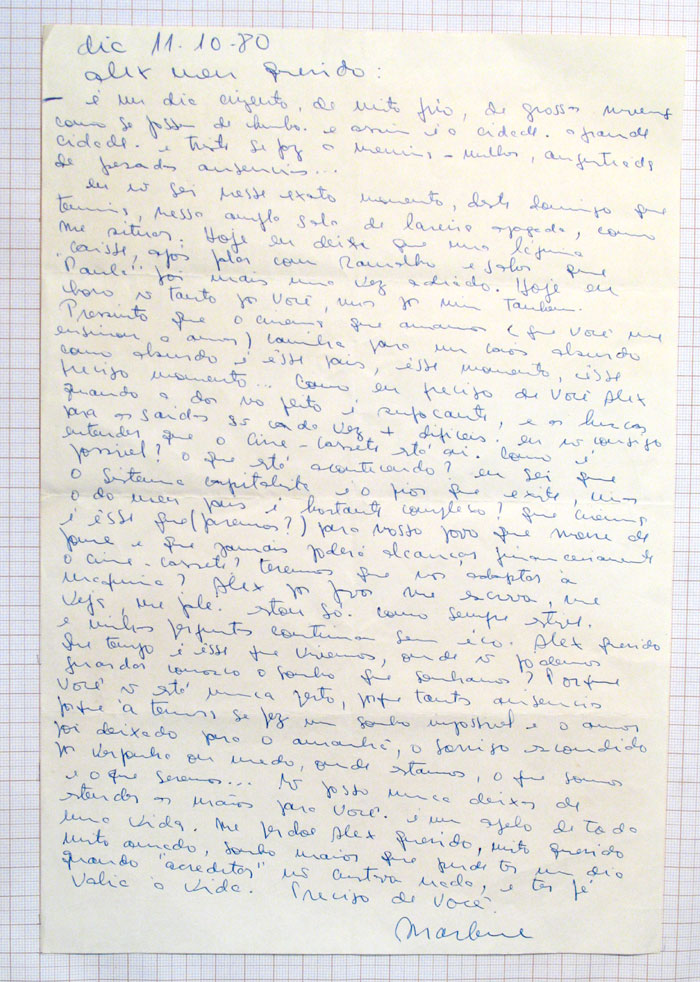 dic 11.10.80
Alex meu querido:
é um dia cinzento, de muito frio, de grossas nuvens
como se fossem de chumbo. e assim é a cidade. a grande
cidade. e triste se fez a menina-mulher, angustiada
de pesadas ausencias...
eu ñ sei nesse exato momento, deste domingo que
termina, nessa ampla sala de lareira apagada, como
me situar. Hoje eu deixei que uma lágrima
caísse, após falar com Ramalho e saber que
"Paula" foi mais uma vez adiado. Hoje eu
choro ñ tanto por você, mas por mim também.
Pressinto que o cinema que amamos (que você me
ensinou a amar) caminha para um caos absurdo
como absurdo é êsse país, êsse momento, êsse
preciso momento... Como eu preciso de você Alex
quando a dor no peito é sufocante, e as buscas
para as saídas são cada vez + difíceis. eu ñ consigo
entender que o cine-cassete está aí. Como é
possível? o que está acontecendo? eu sei que
o sistema capitalista é o pior que existe, mas
o do meu país é bastante complexo? que cinema
é êsse que (faremos?) para nosso povo que morre de
fome e que jamais poderá alcançar financeiramente
o cine-cassete? teremos que nos adaptar à
máquina? Alex por favor me escreva, me
veja, me fale. estou só. como sempre estive.
e minhas perguntas continuam sem éco. Alex querido
que tempo é êsse que vivemos, onde ñ podemos
guardar conosco o sonho que sonhamos? Porque
você ñ está nunca perto, porque tanta ausencia
porque a ternura se fez um sonho impossível e o amor
foi deixado para o amanhã, o sorriso escondido
por vergonha ou medo, onde estamos, o que somos
e o que seremos... Ñ posso nunca deixar de
estender as mãos para você. é um apelo de toda
uma vida. Me perdoe Alex querido, muito querido
muito amado, sonho maior que pude ter um dia
quando "acreditar" ñ custava nada, e ter fé
valia a vida. Preciso de você.
Marlene